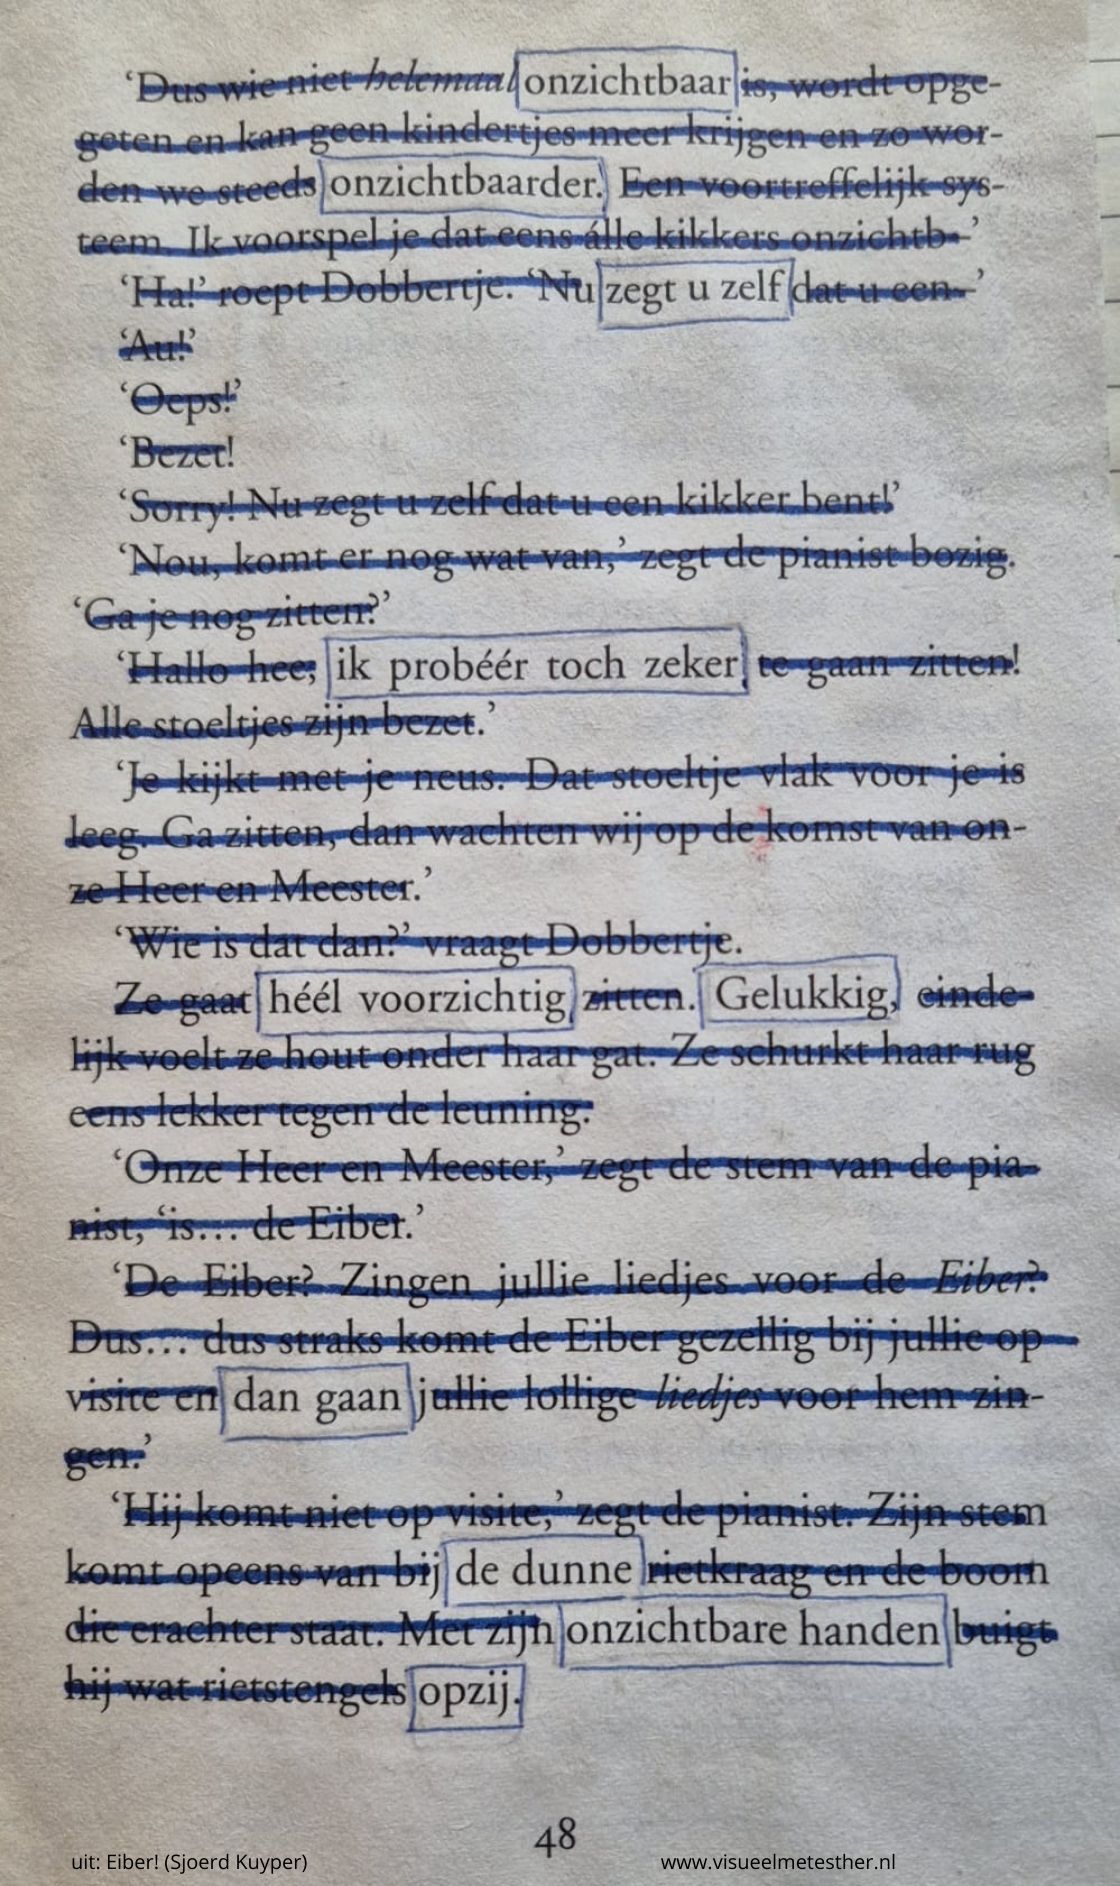 ‘Dus wie niet helemaal onzichtbaar is, wordt opge-
geten en kan geen kindertjes meer krijgen en zo wor-
den we steeds onzichtbaarder. Een voortreffelijk sys-
teem. Ik voorspel je dat eens álle kikkers onzichtb- ’
‘Ha!’ roept Dobbertje. ‘Nu zegt u zelf dat u een- ’
‘Au!’
‘Oeps!’
‘Bezet!
‘Sorry! Nu zegt u zelf dat u een kikker bent!’
‘Nou, komt er nog wat van,’ zegt de pianist bozig.
‘Ga je nog zitten?’
‘Hallo hee, ik probéér toch zeker te gaan zitten!
Alle stoeltjes zijn bezet.’
‘Je kijkt met je neus. Dat stoeltje vlak voor je is
leeg. Ga zitten, dan wachten wij op de komst van on-
ze Heer en Meester.’
‘Wie is dat dan?’ vraagt Dobbertje.
Ze gaat héél voorzichtig zitten. Gelukkig, einde-
lijk voelt ze hout onder haar gat. Ze schurkt haar rug
eens lekker tegen de leuning.
‘Onze Heer en Meester,’ zegt de stem van de pia-
nist, ‘is… de Eiber.’
‘De Eiber? Zingen jullie liedjes voor de Eiber?
Dus… dus straks komt de Eiber gezellig bij jullie op
visite en dan gaan jullie lollige liedjes voor hem zin-
gen.’
‘Hij komt niet op visite,’ zegt de pianist. Zijn stem
komt opeens van bij de dunne rietkraag en de boom
die erachter staat. Met zijn onzichtbare handen buigt
hij wat rietstengels opzij.
48
uit: Eiber! (Sjoerd Kuyper) www.visueelmetesther.nl